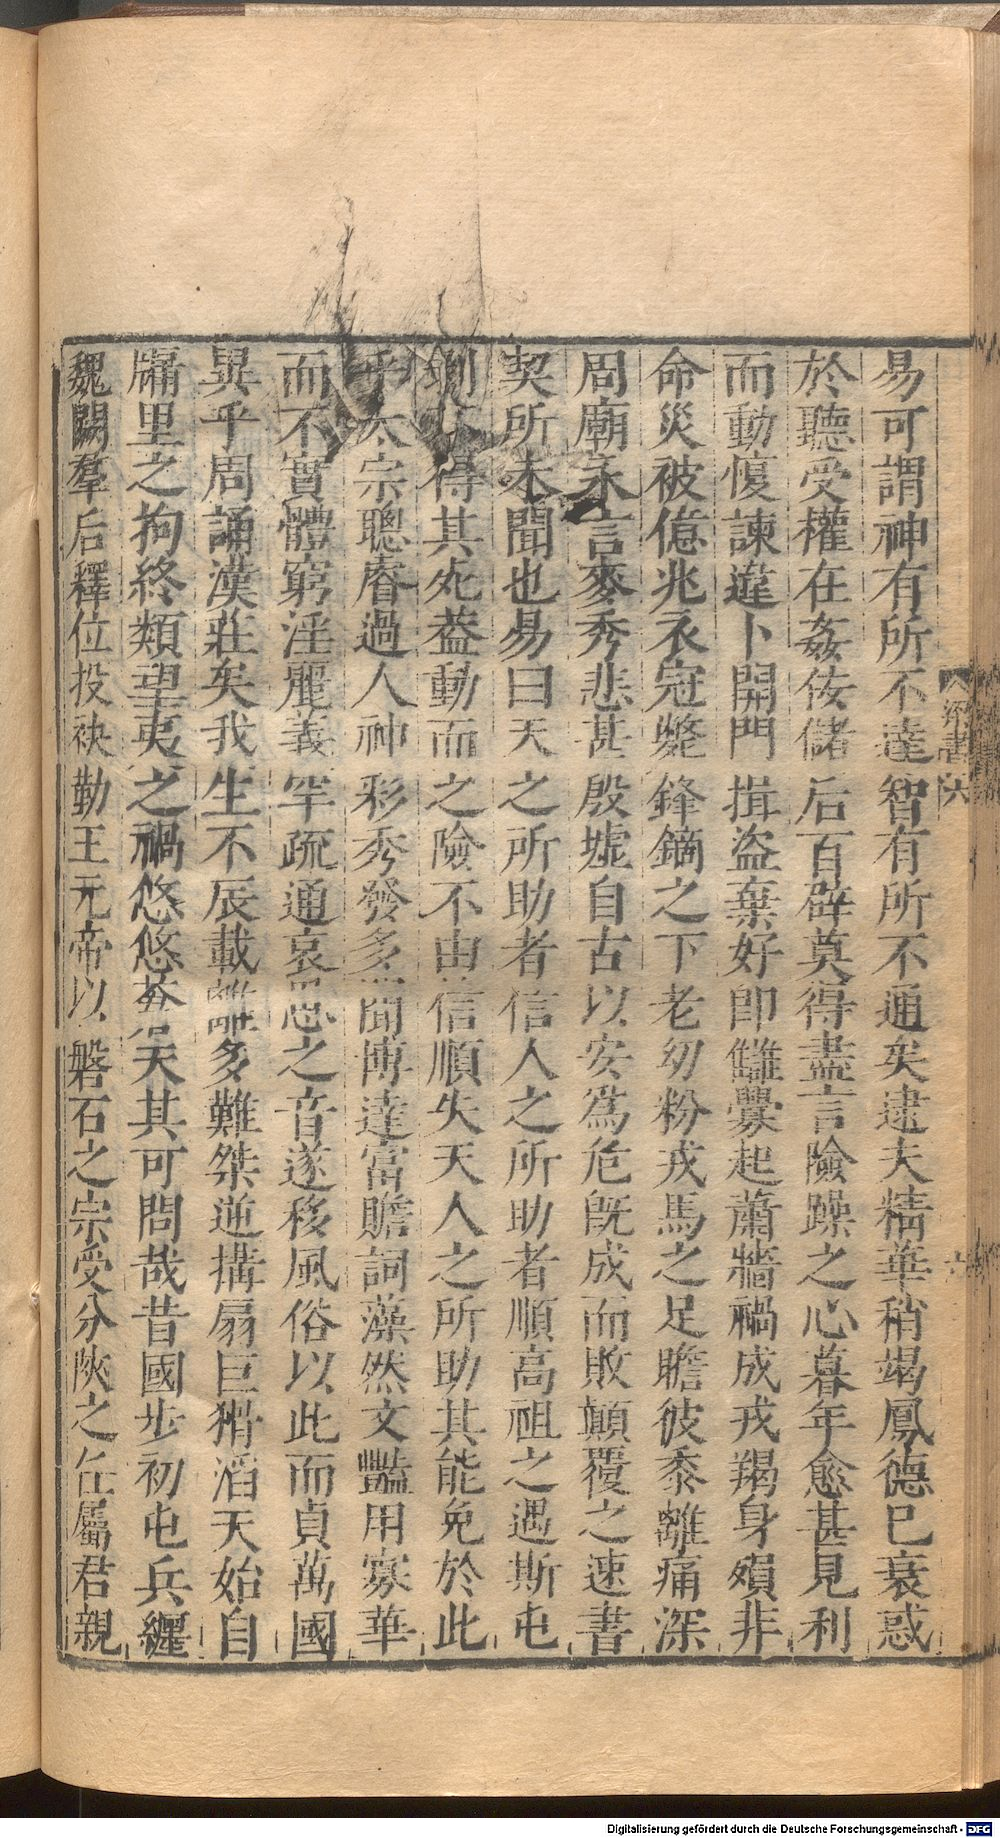 易可謂神有所不達智有所不通矣逮夫精華稍竭鳳德已衰惑
於聽受權在姦佞儲后百辟莫得盡言險躁之心暮年愈甚見利
而動愎諫違卜開門揖盜棄好即讎釁起蕭牆禍成戎羯身殞非
命災被億兆衣冠斃鋒鏑之下老幼粉戎馬之足瞻彼黍離痛深
周廟永言麥秀悲甚殷墟自古以安爲危旣成而敗顛覆之速書
契所未聞也易曰天之所助者信人之所助者順高祖之遇斯屯
剝不得其死葢動而之險不由信順失天人之所助其能免於此
乎太宗聰睿過人神彩秀發多聞博達富贍詞藻然文豔用寡華
而不實體窮淫麗義罕疏通哀思之音遂移風俗以此而貞萬國
異乎周誦漢莊矣我生不辰載離多難桀逆搆扇巨猾滔天始自
牖里之拘終類望夷之禍悠悠蒼天其可問哉昔國步初屯兵纏
魏闕羣后釋位投袂勤王元帝以磐石之宗受分陝之任屬君親
梁書六
六
Digitalisierung gefördert durch die Deutsche Forschungsgemeinschaft - DFG